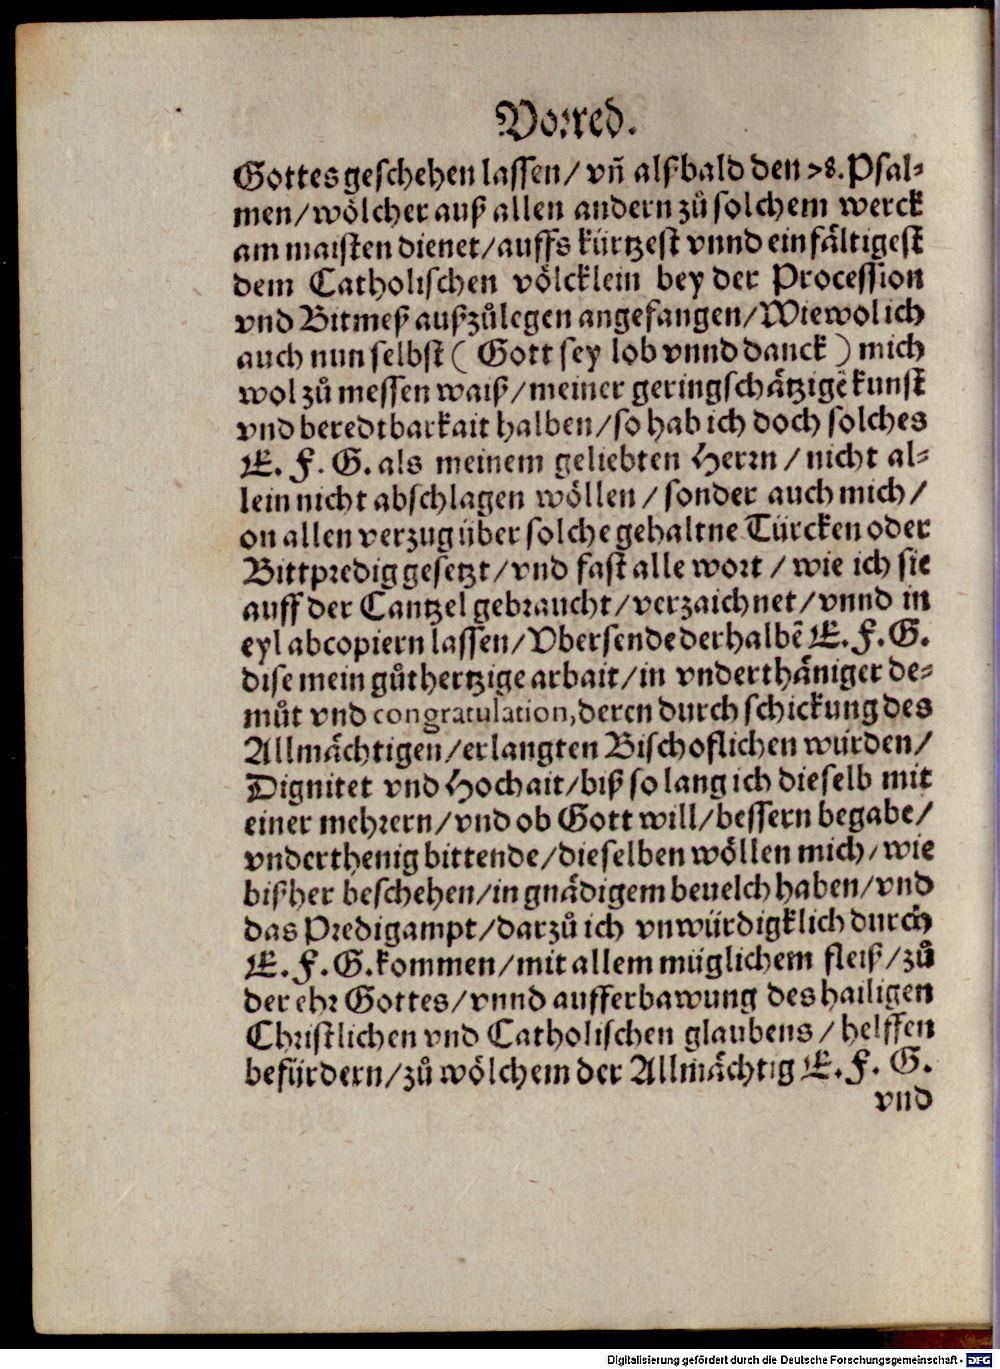 Vorred.
Gottes geschehen lassen / vñ alßbald den 78. Psal-
men / wölcher auß allen andern zů solchem werck
am maisten dienet / auffs kürtzest vnnd einfältigest
dem Catholischen völcklein bey der Procession
vnd Bitmeß außzůlegen angefangen / Wiewol ich
auch nun selbst ( Gott sey lob vnnd danck ) mich
wol zů messen waiß / meiner geringschätzigẽ kunst
vnd beredtbarkait halben / so hab ich doch solches
E. F. G. als meinem geliebten Herrn / nicht al-
lein nicht abschlagen wöllen / sonder auch mich /
on allen verzug über solche gehaltne Türcken oder
Bittpredig gesetzt / vnd fast alle wort / wie ich sie
auff der Cantzel gebraucht / verzaichnet / vnnd in
eyl abcopiern lassen / Vbersende derhalbẽ E. F. G.
dise mein gůthertzige arbait / in vnderthäniger de-
můt vnd congratulation, deren durch schickung des
Allmächtigen / erlangten Bischoflichen würden /
Dignitet vnd Hochait / biß so lang ich dieselb mit
einer mehrern / vnd ob Gott will / bessern begabe /
vnderthenig bittende / dieselben wöllen mich / wie
bißher beschehen / in gnädigem beuelch haben / vnd
das Predigampt / darzů ich vnwürdigklich durch
E. F. G. kommen / mit allem müglichem fleiß / zů
der ehr Gottes / vnnd aufferbawung des hailigen
Christlichen vnd Catholischen glaubens / helffen
befürdern / zů wölchem der Allmächtig E. F. G.
vnd
Digitalisierung gefördert durch die Deutsche Forschungsgemeinschaft - DFG